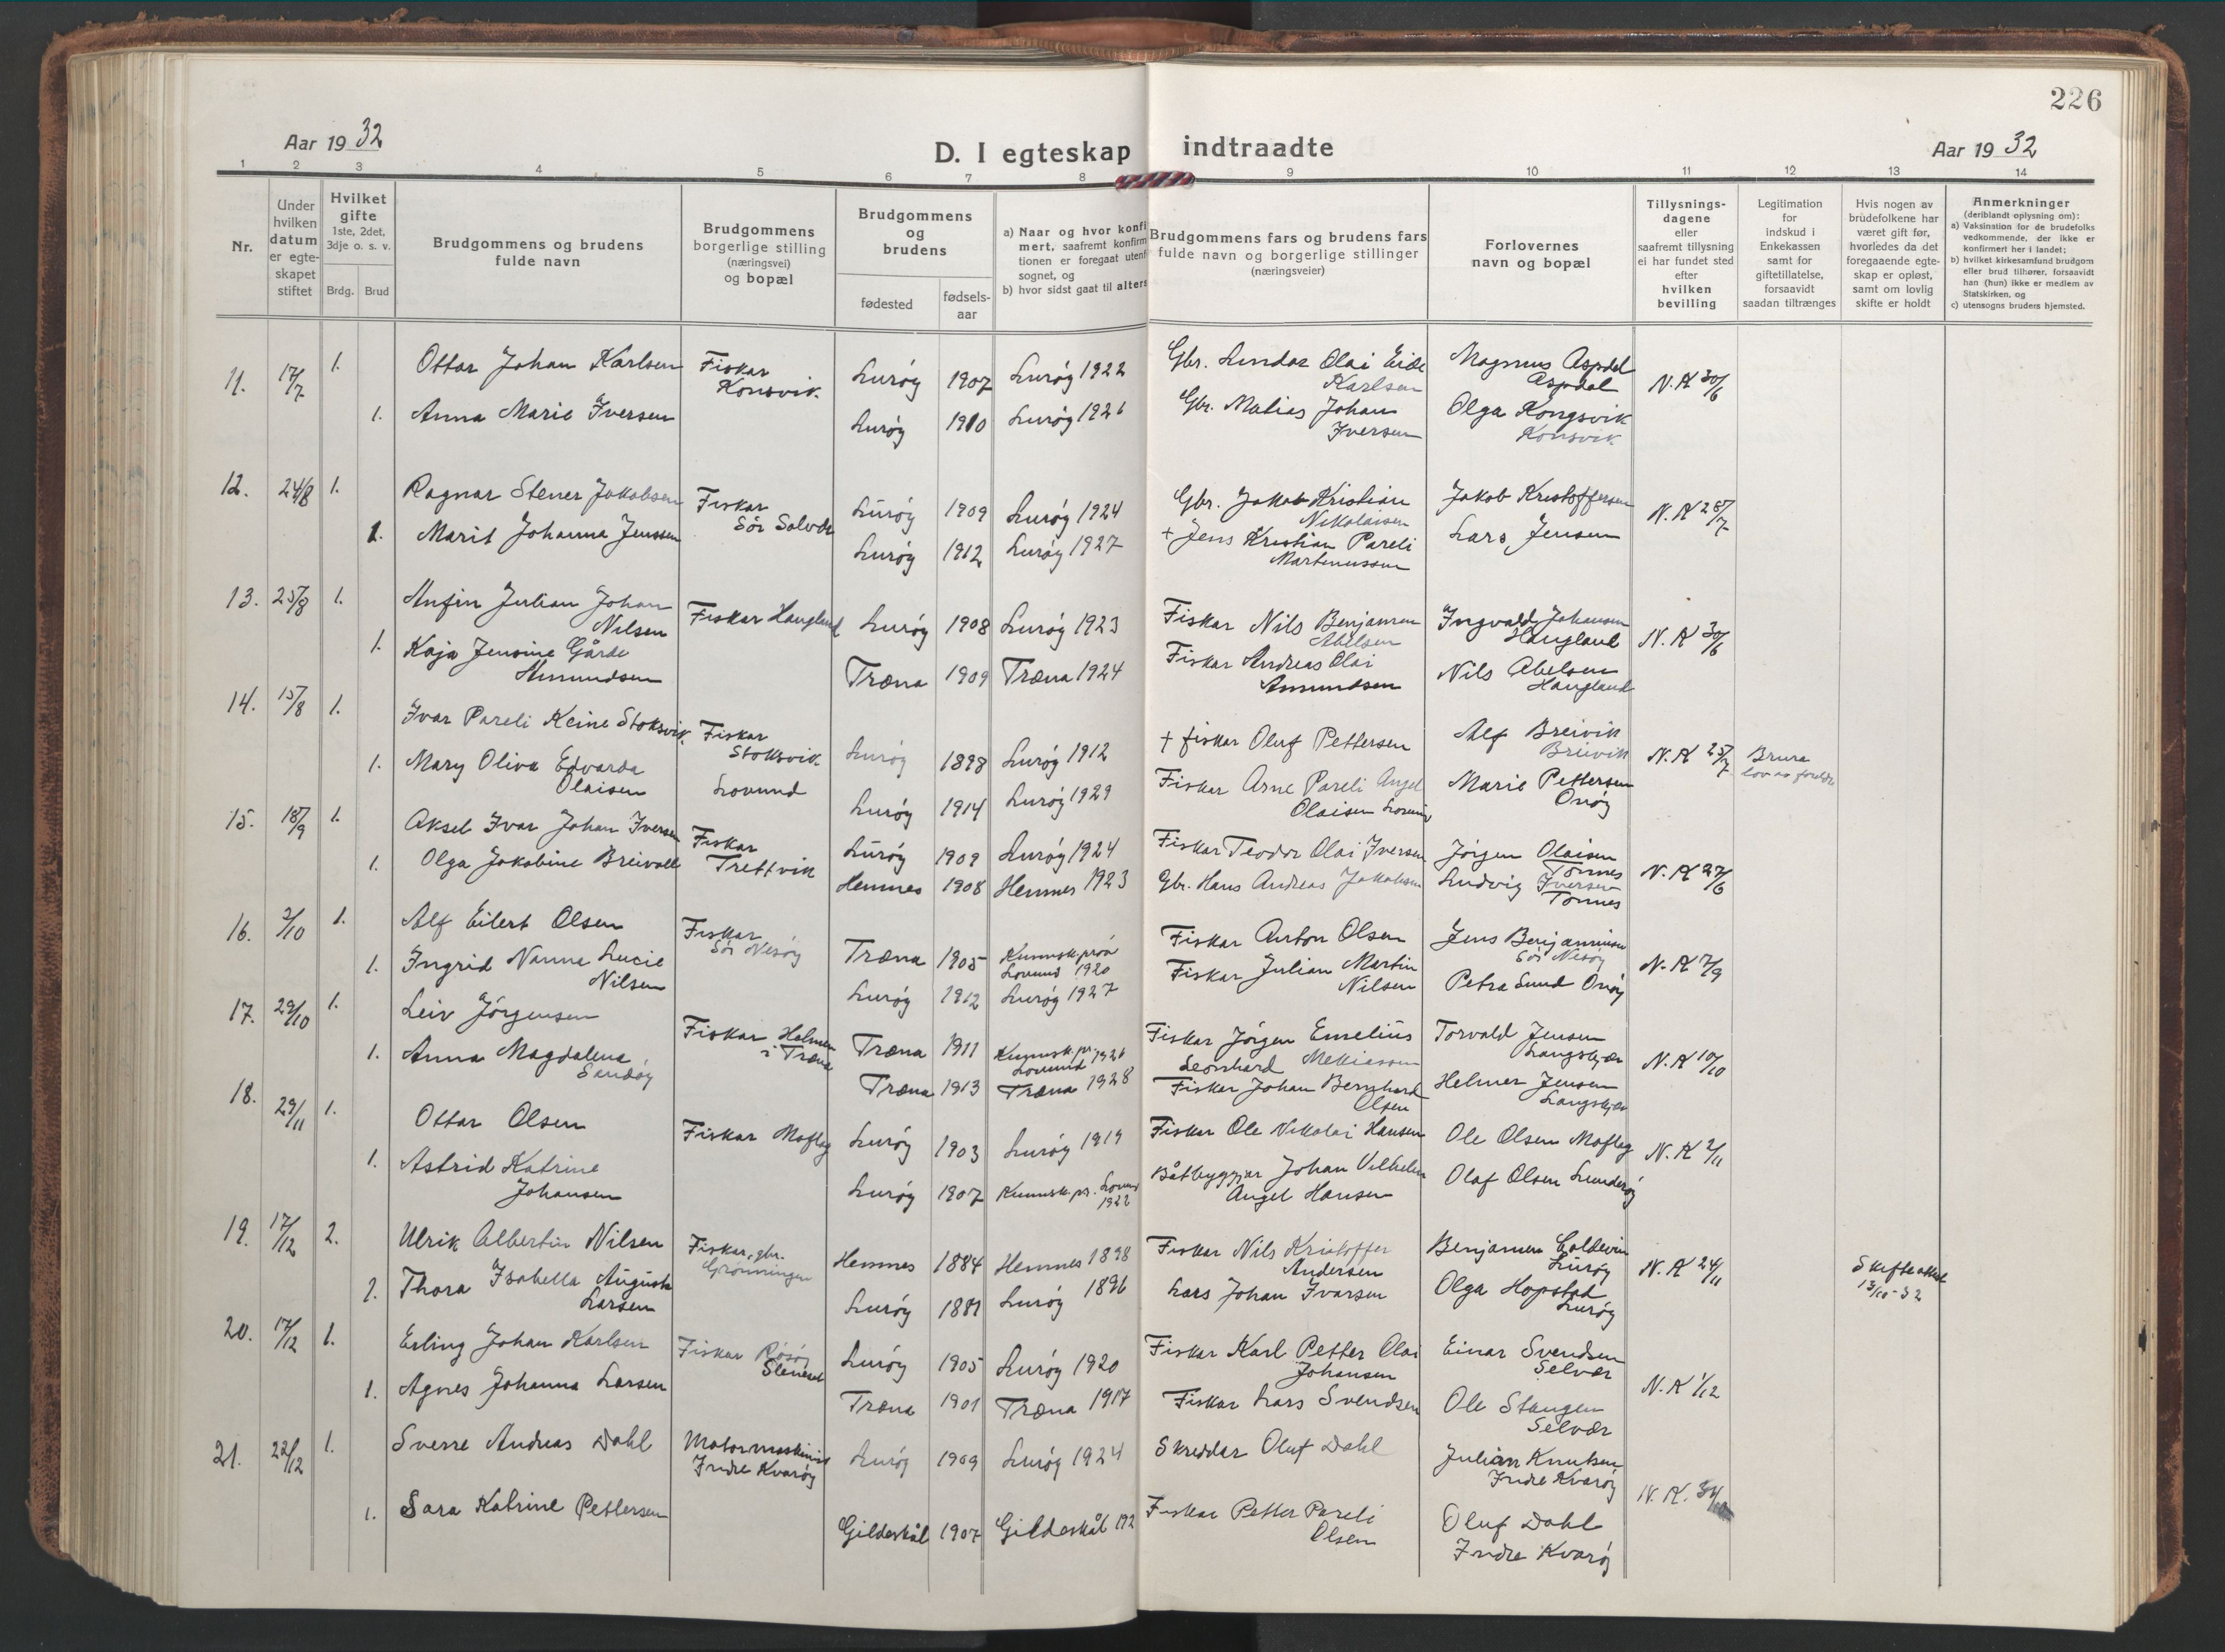 226
Aar 1932
D. I egteskap indtraadte
Aar 1932
1 2 3 4 5 6 7 8 9 10 11 12 13 14
Nr.
Under hvilken datum er egte-skapet stiftet
Hvilket gifte 1ste, 2det, 3dje o. s. v.
Brdg. Brud
Brudgommens og brudens fulde navn
Brudgommens borgerlige stilling (næringsvei) og bopæl
Brudgommens og brudens
fødested
fødsels-aar
a) Naar og hvor konfi
mert, saafremt konfirm
tionen er foregaat utenf
sognet, og
b) hvor sidst gaat til alters
Brudgommens fars og brudens fars
fulde navn og borgerlige stillinger
(næringsveier)
Forlovernes
navn og bopæl
Tillysnings-
dagene
eller
saafremt tillysning
ei har fundet sted
efter
hvilken
bevilling
Legitimation
for
indskud i
Enkekassen
samt for
giftetillatelse,
forsaavidt
saadan tiltrænges
Hvis nogen av
brudefolkene har
været gift før,
hvorledes da det
foregaaende egte-
skap er opløst,
samt om lovlig
skifte er holdt
Anmerkninger
(deriblandt oplysning om):
a) Vaksination for de brudefolks
vedkommende, der ikke er
konfirmert her i landet;
b) hvilket kirkesamfund brudgom
eller brud tilhører, forsaavidt
han (hun) ikke er medlem av
Statskirken, og
c) utensogns bruders hjemsted.
11. 17/7 1. Ottar Johan Karlsen Fiskar Konsvik. Lurøy 1907 Lurøy 1922 Gbr. Olai Eide Karlsen Magnus Aspdal Aspdal N.K 30/6
1. Anna Marie Iversen Lurøy 1910 Lurøy 1926 Gbr. Matias Johan Iversen Olga Kongsvik Konsvik
12. 24/8 1. Ragnar Stener Jakobsen Fiskar Sör Solvær Lurøy 1909 Lurøy 1924 Gbr. Jakob Kristian Nikolaisen Jakob Kristoffersen N.K 28/7
1. Marit Johanna Jenssen Lurøy 1912 Lurøy 1927 + Jens Kristian Pareli Martinussen Lars Jensen
13. 25/8 1. Anfin Julian Johan Nilsen Fiskar Haugland Lurøy 1908 Lurøy 1923 Fiskar Nils Benjamin Abelsen Ingvald Johansen Haugland N.K 30/6
1. Kaja Jensine Gårde Amundsen Træna 1909 Træna 1924 Fiskar Andreas Olai Amundsen Nils Abelsen Haugland
14. 15/8 1. Ivar Pareli Keine Stoksvik Fiskar Stoksvik Lurøy 1898 Lurøy 1912 + fiskar Oluf Pettersen Alf Breivik Breivik N.K 25/7 Brura
1. Mary Oliva Edvarda Olaisen Lovund Lurøy 1914 Lurøy 1929 Fiskar Arne Pareli Angel Olaisen Lovund Marie Pettersen Onøy
15. 18/9 1. Aksel Ivar Johan Iversen Fiskar Trettvik Lurøy 1909 Lurøy 1924 Fiskar Teodor Olai Iversen Jörgen Olaisen Tonnes N.K 27/6
1. Olga Jakobine Breivoll Hemnes 1908 Hemnes 1923 Gbr. Hans Andreas Jakobsen Ludvig Iversen Tonnes
16. 2/10 1. Alf Eilert Olsen Fiskar Sör Nesøy Træna 1905 Kunnsk.prøv Lovund 1920 Fiskar Anton Olsen Jens Benjaminsen Sör Nesøy N.K 7/9
1. Ingrid Nanna Lucie Nilsen Lurøy 1912 Lurøy 1927 Fiskar Julian Martin Nilsen Petra Lund Onøy
17. 29/10 1. Leiv Jörgensen Fiskar Holmen i Træna Træna 1911 Kunnsk.pr. 1926 Lovund Fiskar Jörgen Emelius Leonhard Mekiassen Torvald Jensen Langskjær N.K 10/10
1. Anna Magdalena Sandøy Træna 1913 Træna 1928 Fiskar Johan Bernhard Olsen Helmer Jensen Langskjær
18. 29/11 1. Ottar Olsen Fiskar Moflag Lurøy 1903 Lurøy 1919 Fiskar Ole Nikolai Hansen Ole Olsen Moflag N.K 2/11
1. Astrid Katrine Johansen Lurøy 1907 Kunnsk.pr. Lovund 1922 Båtbyggjar Johan Vilhelm Angel Hansen Olaf Olsen Lunderøy
19. 17/12 2. Ulrik Albertin Nilsen Fiskar, gbr. Grønningen Hemnes 1884 Hemnes 1898 Fiskar Nils Kristoffer Andersen Benjamin Coldevin Lurøy N.K 24/11 Skifteattest 13/10-32
2. Thora Isabella Augusta Larsen Lurøy 1881 Lurøy 1896 Lars Johan Ivarsen Olga Hopstad Lurøy
20. 17/12 1. Erling Johan Karlsen Fiskar Rösöy Lurøy 1905 Lurøy 1920 Fiskar Karl Petter Olai Johansen Einar Svendsen Selvær N.K 1/12
1. Agnes Johanna Larsen Træna 1901 Træna 1917 Fiskar Lars Svendsen Ole Stangen Selvær
21. 22/12 1. Sverre Andreas Dahl Motormaskinist Indre Kvarøy Lurøy 1909 Lurøy 1924 Skreddar Oluf Dahl Julian Knutsen Indre Kvarøy N.K.
1. Sara Katrine Pettersen Gildeskål 1907 Gildeskål 192 Fiskar Petter Pareli Olsen Oluf Dahl Indre Kvarøy